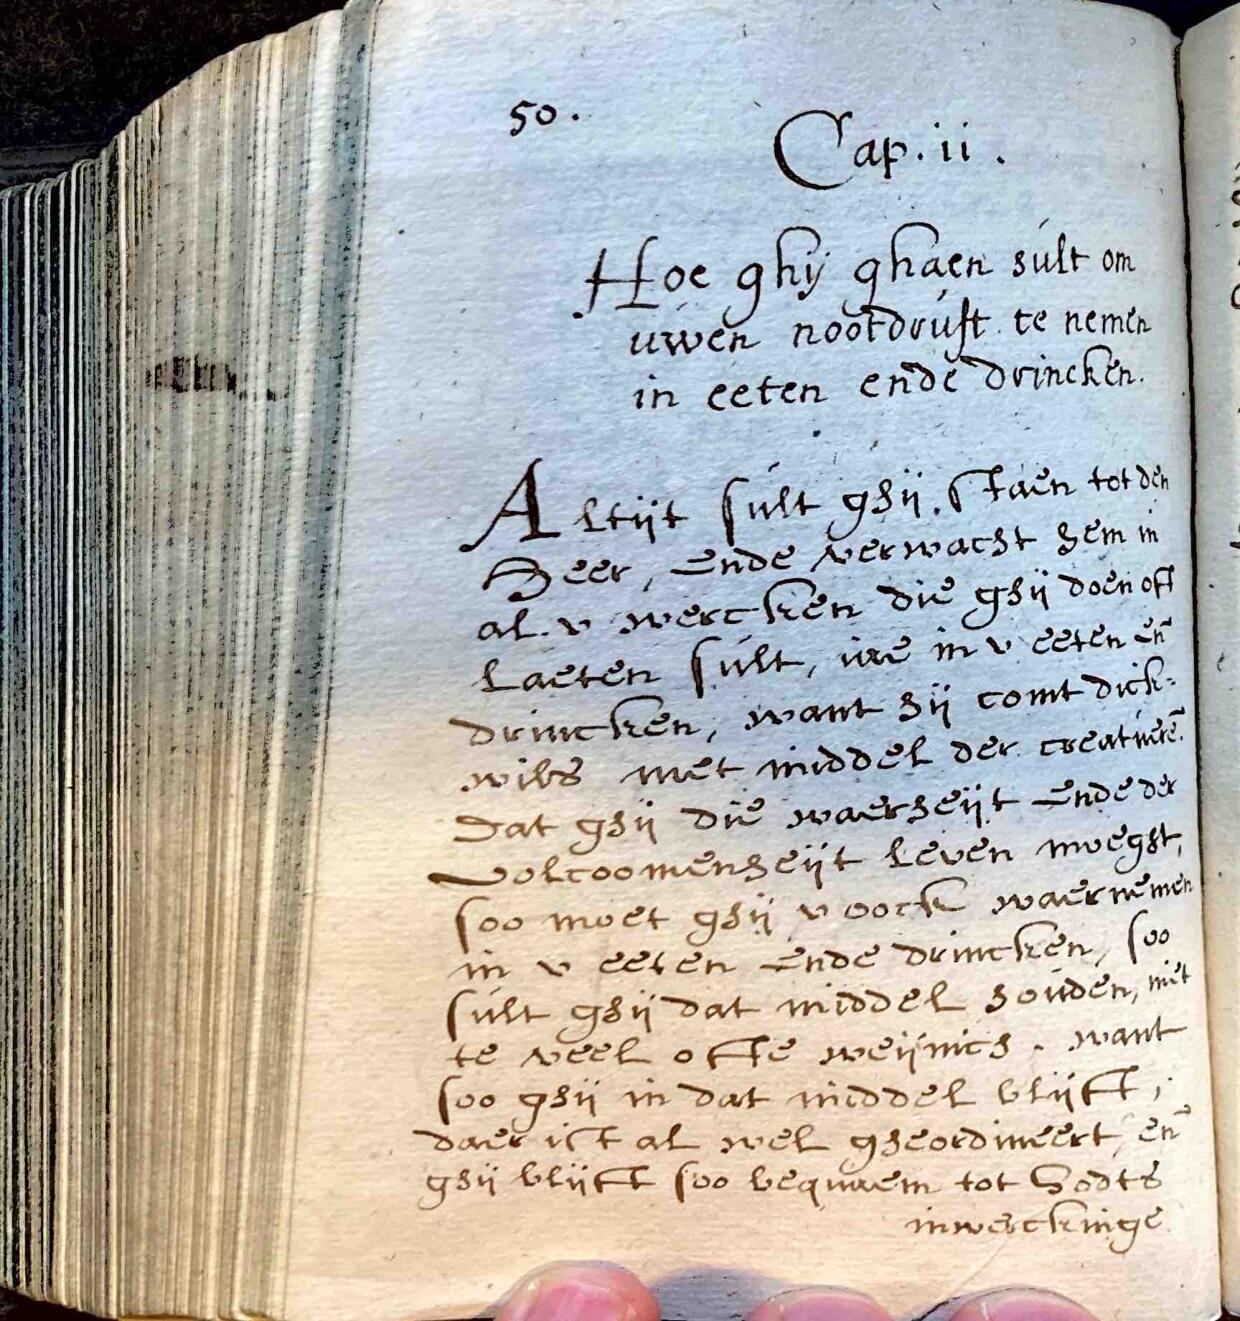 50.
Cap. ii.
Hoe ghij ghaen sult om
uwen nootdruft te nemen
in eeten ende drincken.
Altijt sult ghij staen tot den
Heer, ende verwacht hem in
al v wercken die ghij doen oft
laeten sult, in v eeten eñ
drincken, want hij comt dick-
wils met middel der creatuerē.
Dat ghij die waerheijt ende der
volcoomenheijt leven moeght,
soo moet ghij v oock waernemen
in v eeten ende drincken, soo
sult ghij dat middel houden, niet
te veel ofte weijnich. want
soo ghij in dat middel blijft,
daer ist al wel gheordineert, eñ
ghij blijft soo bequaem tot Godts
inwerckinge